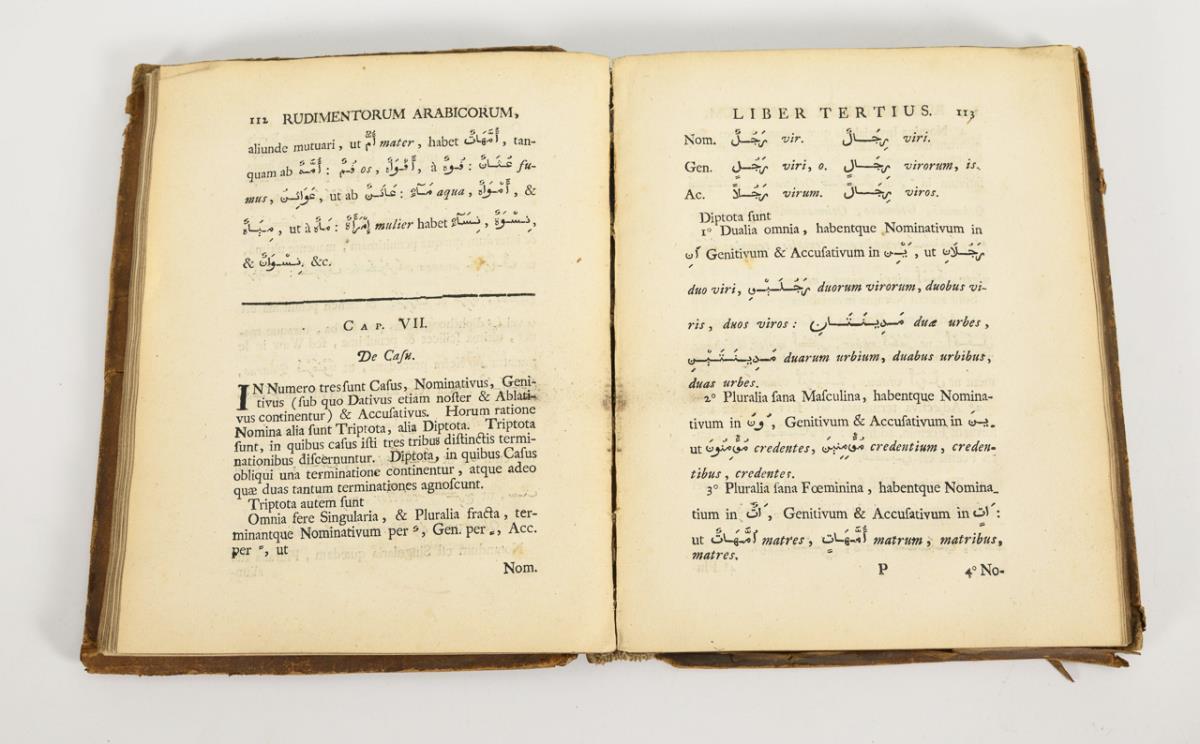 112 RUDIMENTORUM ARABICORUM,
aliunde mutuari, ut أُمٌّ mater, habet أُمَّهَاتٌ, tan-
quam ab أُمَّهَةٌ : فُمٌ os, أَفْوَاهٌ, à فُوهٌ : عُثَانٌ fu-
mus, عَوَاثِنُ, ut ab عَاثَنٌ : مَآءٌ aqua, أَمْوَاهٌ, &
مِيَاهٌ, ut à مَاهٌ : إِمْرَأَةٌ mulier habet نِسَآءٌ, نِسْوَةٌ,
& نِسْوَانٌ, &c.
CAP. VII.
De Caſu.
IN Numero tres ſunt Caſus, Nominativus, Geni-
tivus (ſub quo Dativus etiam noſter & Ablati-
vus continentur) & Accuſativus. Horum ratione
Nomina alia ſunt Triptota, alia Diptota. Triptota
ſunt, in quibus caſus iſti tres tribus diſtinctis termi-
nationibus diſcernuntur. Diptota, in quibus Caſus
obliqui una terminatione continentur, atque adeo
quæ duas tantum terminationes agnoſcunt.
Triptota autem ſunt
Omnia fere Singularia, & Pluralia fracta, ter-
minantque Nominativum per ـٌ, Gen. per ـٍ, Acc.
per ـً, ut
Nom.
LIBER TERTIUS. 113
Nom. رَجُلٌ vir. رِجَالٌ viri.
Gen. رَجُلٍ viri, o. رِجَالٍ virorum, is.
Ac. رَجُلاً virum. رِجَالً viros.
Diptota ſunt
1° Dualia omnia, habentque Nominativum in
َانِ Genitivum & Accuſativum in َيْنِ, ut رَجُلَانِ
duo viri, رَجُلَيْنِ duorum virorum, duobus vi-
ris, duos viros : مَدِينَتَانِ duæ urbes,
مَدِينَتَيْنِ duarum urbium, duabus urbibus,
duas urbes.
2° Pluralia ſana Maſculina, habentque Nomina-
tivum in ُونَ, Genitivum & Accuſativum in ِينَ.
ut مُؤْمِنُونَ credentes, مُؤْمِنِينَ credentium, creden-
tibus, credentes.
3° Pluralia ſana Fœminina, habentque Nomina-
tium in َاتٌ, Genitivum & Accuſativum in َاتٍ :
ut أُمَّهَاتٌ matres, أُمَّهَاتٍ matrum, matribus,
matres.
P 4° No-